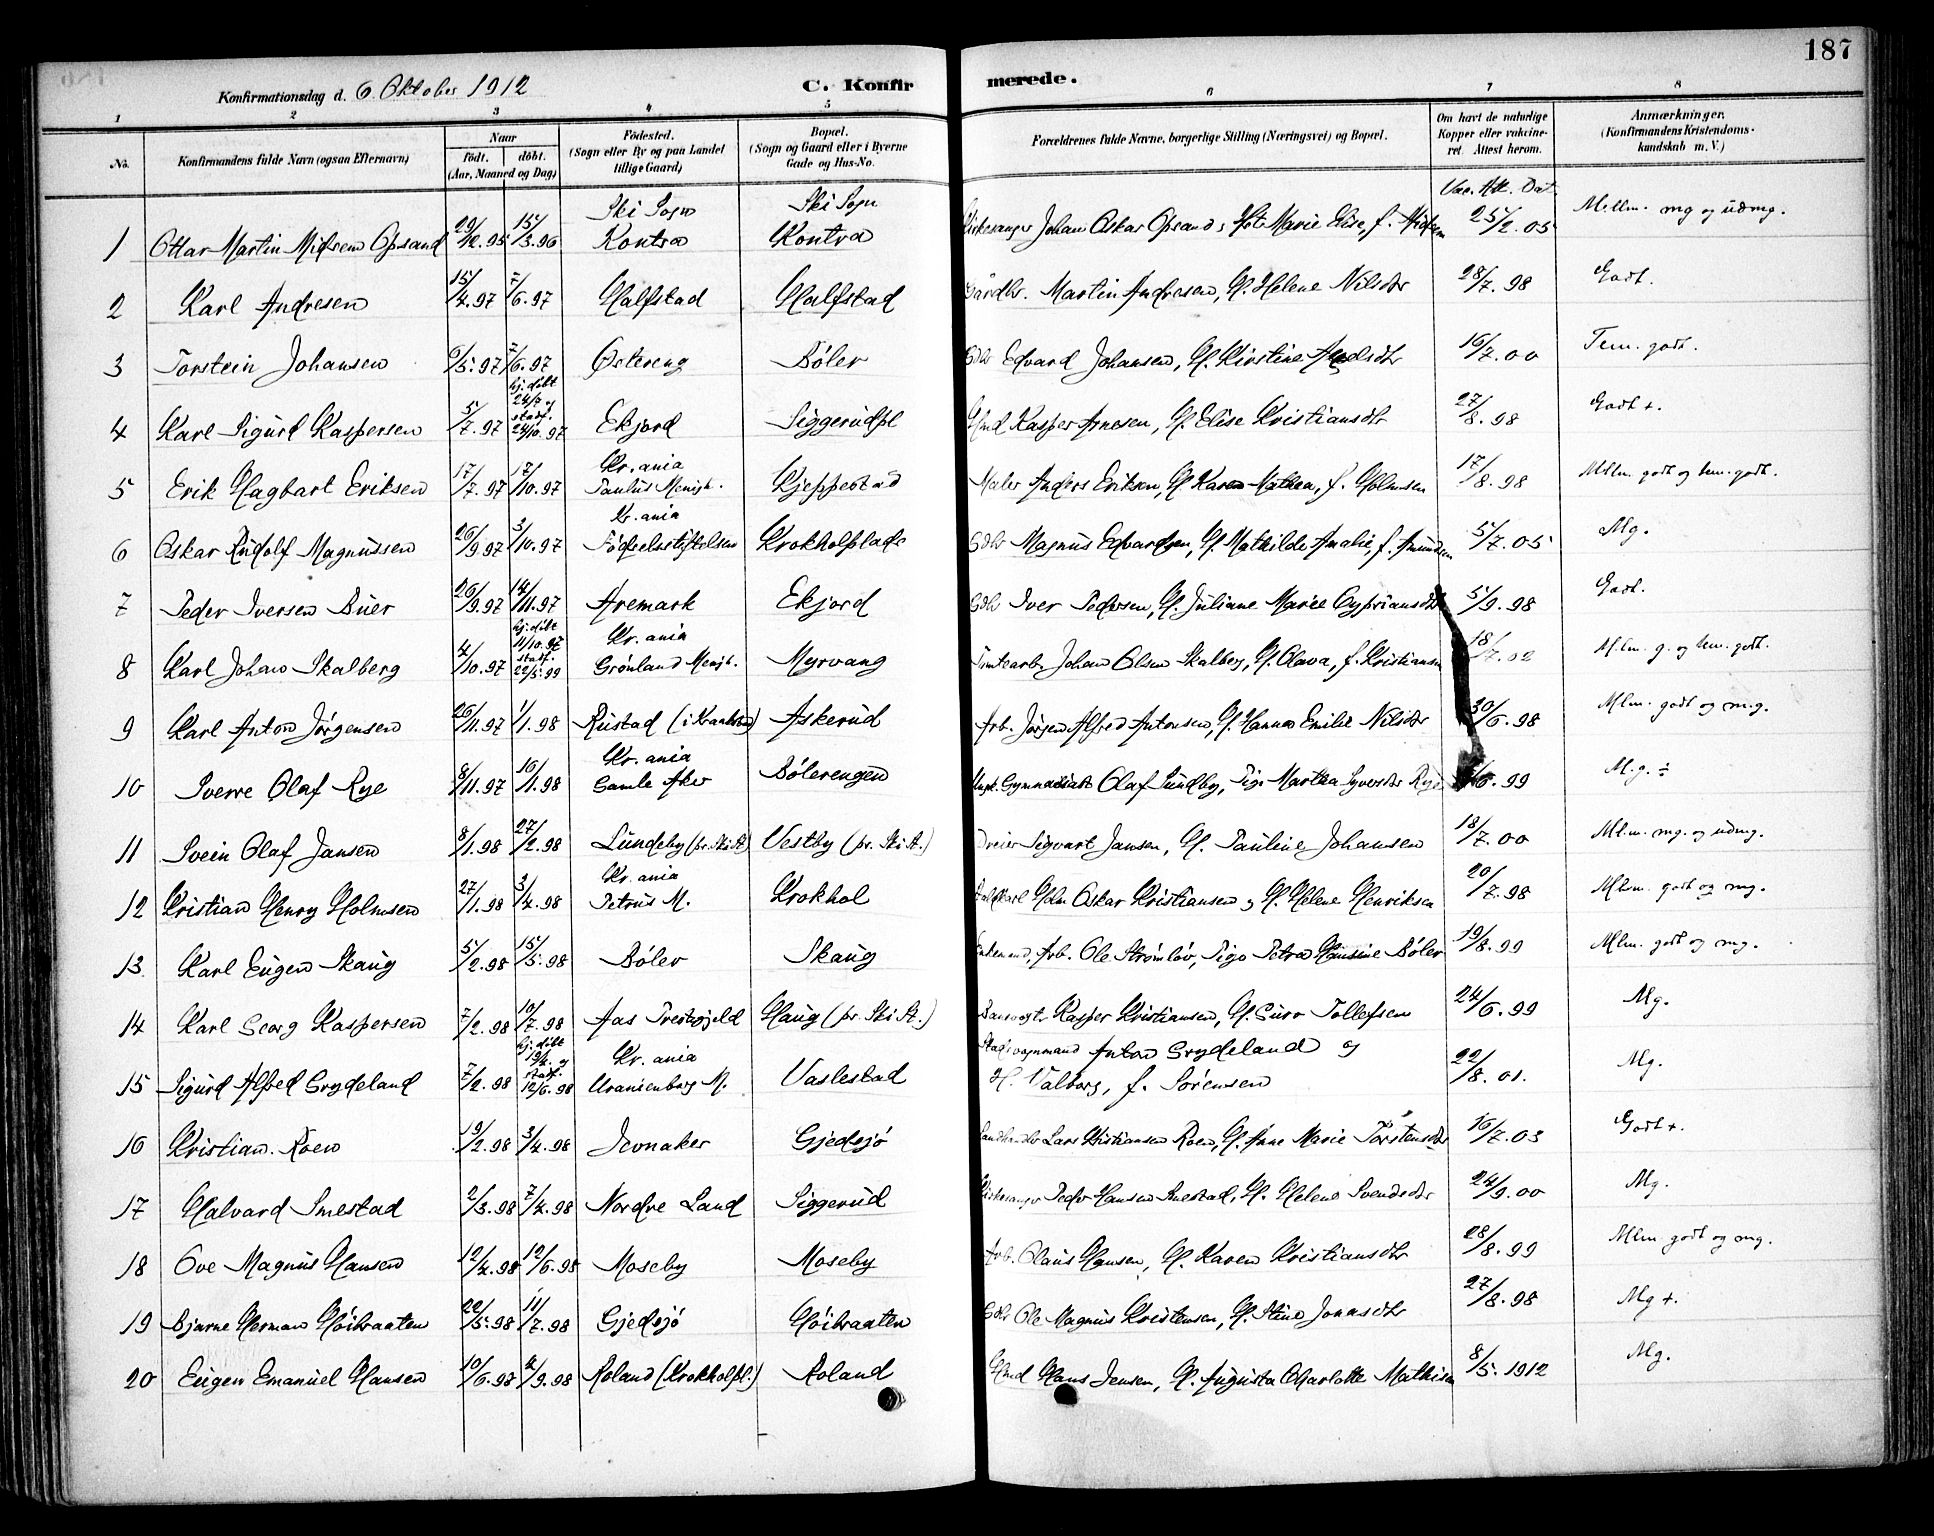 187
Konfirmationsdag d. 6. Oktober 1912
C. Konfirmerede.
1 2 3 4 5 6 7 8
No.
Konfirmandens fulde Navn (ogsaa Efternavn)
Naar
født. døbt.
(Aar, Maaned og Dag)
Fødested.
(Sogn eller By og paa Landet
tillige Gaard)
Bopæl.
(Sogn og Gaard eller i Byerne
Gade og Hus-No.
Forældrenes fulde Navne, borgerlige Stilling (Næringsvei) og Bopæl.
Om havt de naturlige
Kopper eller vakcine-
ret. Attest herom.
Anmærkninger.
(Konfirmandens Kristendoms-
kundskab m. V.)
Ski Sogn Ski Sogn Vac. Att. Dat.
1 Ottar Martin Midsem Opsand 29/12.95 15/3.96 Kontra Kontra Kirkesanger Johan Oskar Opsand, Marie Elise, f. 25/2.05 M.llm. mg og udmg.
2 Karl Andresen 15/4.97 7/6.97 Halfstad Halfstad Gårdbr. Martin Andresen, H. Helene Nilsdtr 28/7.98 Godt.
3 Torstein Johansen 6/5.97 7/6.97 Østereng Bøler Gdbr Edvard Johansen, H. Kirstine 16/7.00 Tem. godt.
4 Karl Sigurd Kaspersen 5/7.97 hj. døbt 24/7 og stadf. 24/10.97 Ekjord Siggerudpl Hmd Kasper Arnesen, H. Elise Kristiansdtr 27/8.98 Godt +.
5 Erik Hagbart Eriksen 17/7.97 17/10.97 Kr.ania Paulus Menigh. Kjeppestad Maler Anders Eriksen, H. Karen Mathea, f. Holmsen 17/8.98 Mllm. godt og tem. godt.
6 Oskar Rudolf Magnussen 26/9.97 3/10.97 Kr.ania Fødselsstiftelsen Krokholplads Gdbr Magnus Edvardsen, H. Mathilde Amalie, f. Amundsen 5/7.05 Mg.
7 Peder Iversen Buer 26/9.97 14/11.97 Aremark Ekjord Gdbr Iver Pedersen, H. Juliane Marie Cypriansdtr 5/9.98 Godt.
8 Karl Johan Skalberg 4/10.97 hj. døbt 11/10.97 stadf. 22/5.99 Kr.ania Grønland Menigh. Myrvang Tomtearb. Johan Olsen Skalberg, H. Olava, f. Kristiansen 18/7.02 M.lm. g. og tem. godt.
9 Karl Anton Jørgensen 26/11.97 1/1.98 Rustad (i Kraakstad) Askerud Arb. Jørgen Alfred Antonsen, H. Hanna Emilie Nilsdtr 30/6.98 Mlm. godt og m.g.
10 Sverre Olaf Rye 8/11.97 16/1.98 Kr.ania Gamle Aker Bølerengen Ungk. Gymnasiast Olaf Sundby, Pige Martha Syversdtr Rye 6.99 M.g. ÷
11 Svein Olaf Jansen 8/1.98 27/2.98 Lundeby (pr. Ski St.) Vestby (pr. Ski St.) Dreier Sigvart Jansen, H. Pauline Johansen 18/7.00 Ml.m. mg. og udmg.
12 Kristian Henry Holmsen 27/1.98 3/4.98 Kr.ania Petrus M. Krokhol Holm Oskar Kristiansen og H. Helene Henriksen 20/7.98 Mlm. godt og mg.
13 Karl Eugen Skaug 5/2.98 15/5.98 Bøler Skaug Enkemand, Arb. Ole Strømløv, Pige Petra Hansine Bøler 19/8.99 Mlm. godt og mg.
14 Karl Georg Kaspersen 7/2.98 10/7.98 Aas Prestegjeld Haug (pr. Ski St.) Banevogtr Kasper Kristiansen, H. Guro Tollefsen 24/6.99 Mg.
15 Sigurd Alfred Grydeland 7/2.98 hj. døbt 19/2. og stadf. 12/6.98 Kr.ania Uranienborg M. Vaslestad Stadsvognmand Anton Grydeland og
H. Valborg, f. Sørensen 22/8.01. Mg.
16 Kristian Roen 19/2.98 3/4.98 Jevnaker Gjedsjø Landhandlr Lars Kristiansen Roen, H. Anne Marie Torstensdtr 16/7.03 Godt +.
17 Halvard Smestad 2/3.98 7/4.98 Nordre Land Siggerud Kirkesanger Peder Hansen Smestad, H. Helene Svendsdtr 24/9.00 Mg.
18 Ove Magnus Hansen 12/4.98 12/6.98 Moseby Moseby Arb. Olaus Hansen, H. Karen Kristiansdtr 28/8.99 Mlm. godt og mg.
19 Bjarne Herman Høibraaten 22/5.98 11/7.98 Gjedsjø Høibraaten Gdbr Ole Magnus Kristensen, H. Stine Jonasdtr 27/8.98 Mg +.
20 Eugen Emanuel Hansen 10/6.98 4/9.98 Roland (Krokholpl.) Roland Hmd Hans Jensen, H. Augusta Charlotte Mathisen 8/5.1912 Mg.